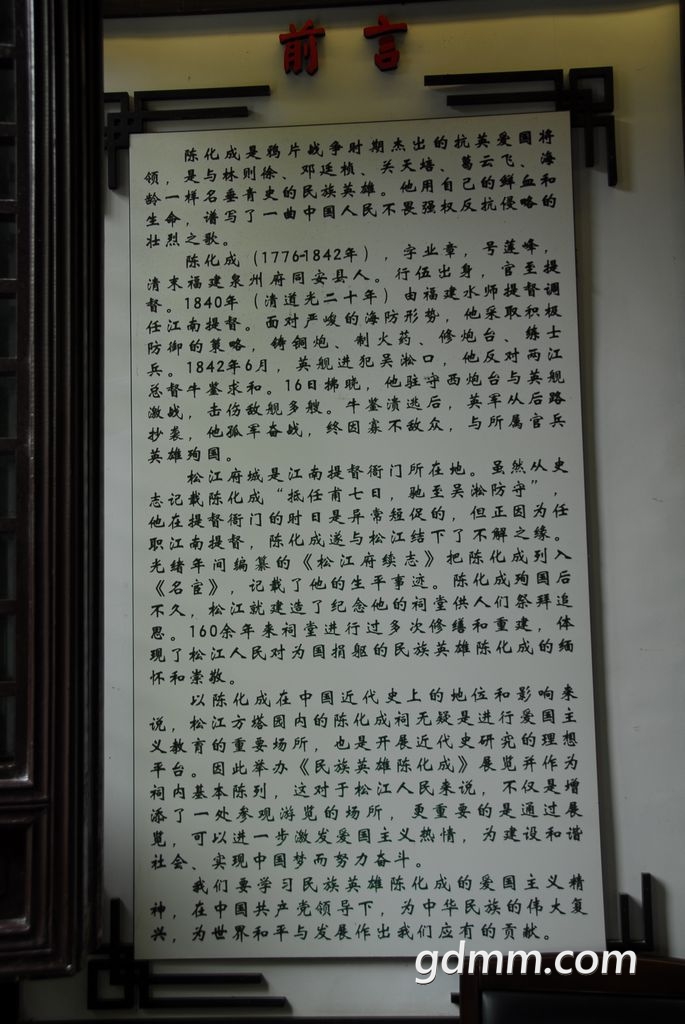 前言
陈化成是鸦片战争时期杰出的抗英爱国将
领，是与林则徐、邓廷桢、关天培、葛云飞、海
龄一样名垂青史的民族英雄。他用自己的鲜血和
生命，谱写了一曲中国人民不畏强权反抗侵略的
壮烈之歌。
陈化成（1776-1842年），字业章，号莲峰，
清末福建泉州府同安县人。行伍出身，官至提
督。1840年（清道光二十年）由福建水师提督调
任江南提督。面对严峻的海防形势，他采取积极
防御的策略，铸铜炮、制火药、修炮台、练士
兵。1842年6月，英舰进犯吴淞口，他反对两江
总督牛鉴求和。16日拂晓，他驻守西炮台与英舰
激战，击伤敌舰多艘。牛鉴溃逃后，英军从后路
抄袭，他孤军奋战，终因寡不敌众，与所属官兵
英雄殉国。
松江府城是江南提督衙门所在地。虽然从史
志记载陈化成“抵任甫七日，驰至吴淞防守”，
他在提督衙门的时日是异常短促的，但正因为任
职江南提督，陈化成遂与松江结下了不解之缘。
光绪年间编纂的《松江府续志》把陈化成列入
《名宦》，记载了他的生平事迹。陈化成殉国后
不久，松江就建造了纪念他的祠堂供人们祭拜追
思。160余年来祠堂进行过多次修缮和重建，体
现了松江人民对为国捐躯的民族英雄陈化成的缅
怀和崇敬。
以陈化成在中国近代史上的地位和影响来
说，松江方塔园内的陈化成祠无疑是进行爱国主
义教育的重要场所，也是开展近代史研究的理想
平台。因此举办《民族英雄陈化成》展览并作为
祠内基本陈列，这对于松江人民来说，不仅是增
添了一处参观游览的场所，更重要的是通过展
览，可以进一步激发爱国主义热情，为建设和谐
社会、实现中国梦而努力奋斗。
我们要学习民族英雄陈化成的爱国主义精
神，在中国共产党领导下，为中华民族的伟大复
兴，为世界和平与发展作出我们应有的贡献。
gdmm.com